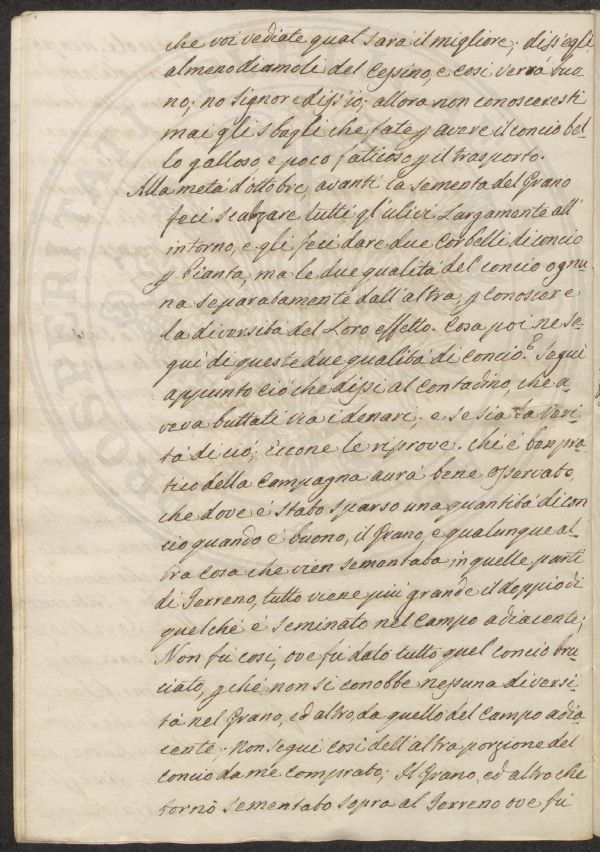 che voi vediate qual sarà il migliore; diss'egli
almeno diamoli del Cessino, e così verrà buo
no; no signore diss'io, allora non conosceresti
mai gli sbagli che fate p avere il concio bel-
lo galloso e poco faticoso p il trasporto.
Alla metà d'ottobre, avanti la sementa del Grano
feci scalzare tutti gl'ulivi Largamente all'
intorno, e gli feci dare due Corbelli di concio
p Pianta, ma le due qualità del concio ognu-
na separatamente dall'altra, p conoscere
la diversità del Loro effetto. Cosa poi ne se-
guì di queste due qualità di concio? Seguì
appunto ciò che dissi al Contadino, che a-
veva buttati via i denari; e se sia la veri-
tà di ciò, eccone le riprove. Chi è ben pra-
tico della Campagna aurà bene osservato,
che dove è stato sparso una quantità di con
cio quando è buono, il Grano, e qualunque al-
tra cosa che vien sementata in quelle parti
di Terreno, tutto viene più grande il doppio di
quel ché è seminato nel Campo adiacente;
Non fù così, ove fù dato tutto quel concio bru-
ciato, p ché non si conobbe nessuna diversi-
tà nel Grano, ed altro, da quello del Campo adia-
cente; non seguì così dell'altra porzione del
concio da me comprato; Il Grano, ed altro che
tornò sementato sopra al Terreno ove fù
PROSPERITATI